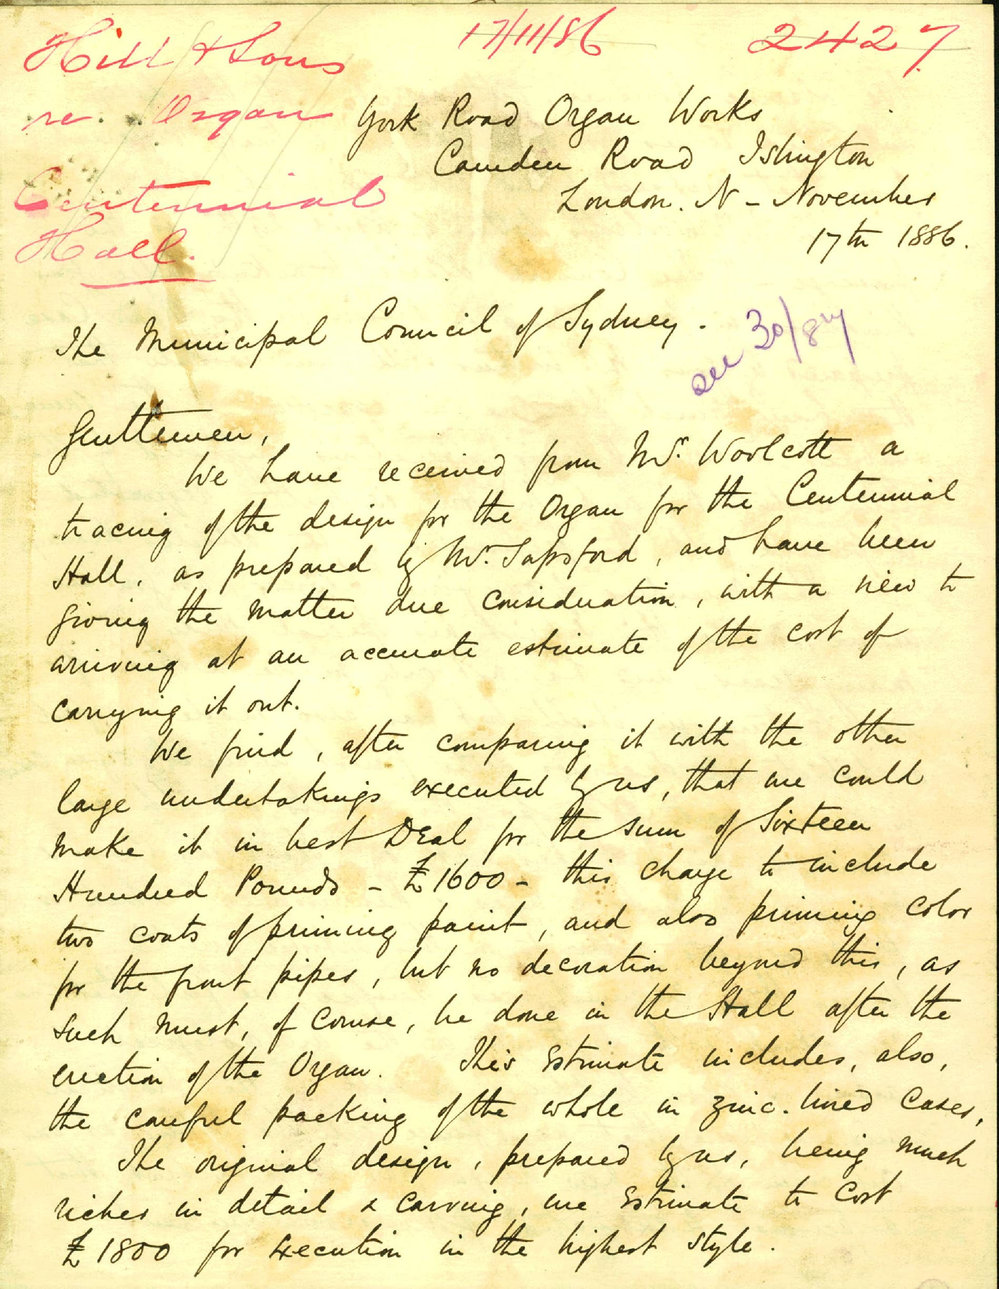 Hill & Sons
re. Organ
Centennial
Hall.
17/11/86
2427
York Road Organ Works
Camden Road Islington
London. N - November
17th 1886.
The Municipal Council of Sydney.
30/87
Gentlemen,
We have received from Mr. Woolcott a
tracing of the design for the Organ for the Centennial
Hall, as prepared by Mr. Sapsford, and have been
giving the matter due consideration, with a view to
arriving at an accurate estimate of the cost of
carrying it out.
We find, after comparing it with the other
large undertakings executed by us, that we could
make it in best Deal for the sum of Sixteen
Hundred Pounds - £1600 - this charge to include
two coats of priming paint, and also priming color
for the front pipes, but no decoration beyond this, as
such must, of course, be done in the Hall after the
erection of the Organ. This Estimate includes, also,
the careful packing of the whole in zinc-lined cases.
The original design, prepared by us, being much
richer in detail & carving, we Estimate to cost
£1800 for Execution in the highest style.